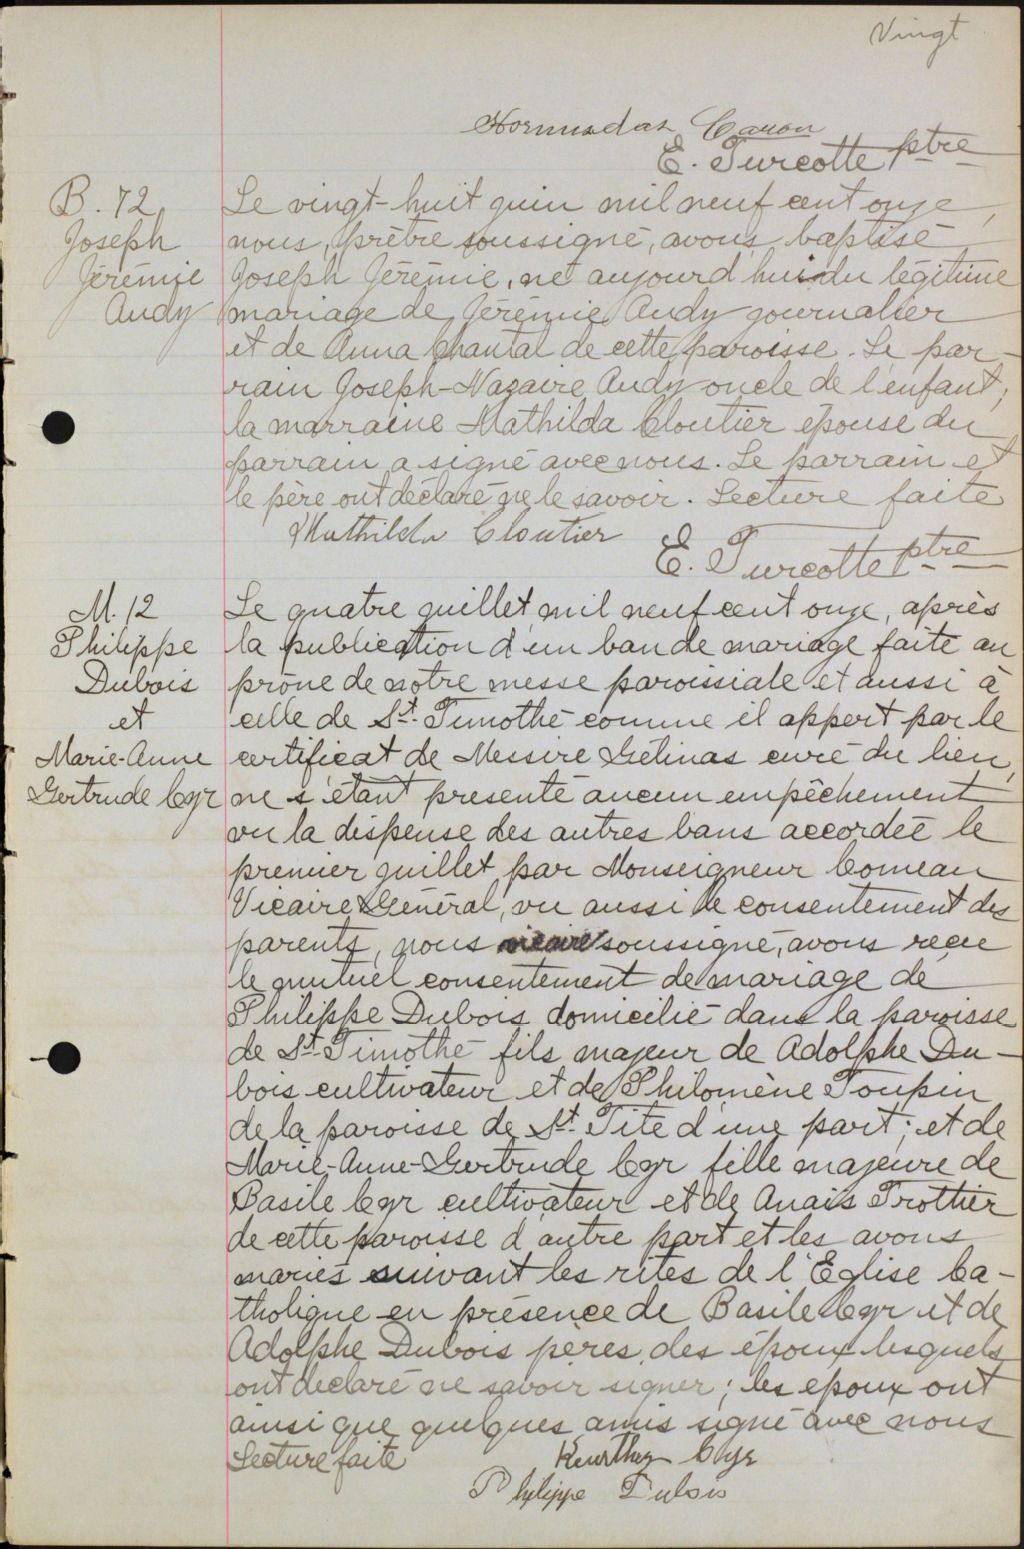 Vingt
Hormisdas Caron
E. Turcotte ptre
B. 72
Joseph
Jérémie
Audy
Le vingt-huit juin mil neuf cent onze,
nous, prêtre soussigné, avons baptisé
Joseph Jérémie, né aujourd'hui du légitime
mariage de Jérémie Audy journalier
et de Anna Chantal de cette paroisse. Le par-
rain Joseph-Nazaire Audy oncle de l'enfant;
la marraine Mathilda Cloutier épouse du
parrain a signé avec nous. Le parrain et
le père ont déclaré ne le savoir. Lecture faite
Mathilda Cloutier
E. Turcotte ptre
M. 12
Philippe
Dubois
et
Marie-Anne
Gertrude Cyr
Le quatre juillet mil neuf cent onze, après
la publication d'un ban de mariage faite au
prône de notre messe paroissiale et aussi à
celle de St. Timothé comme il appert par le
certificat de Messire Gélinas curé du lieu,
ne s'étant présenté aucun empêchement
vu la dispense des autres bans accordée le
premier juillet par Monseigneur Comeau
Vicaire Général, vu aussi le consentement des
parents, nous vicaire soussigné, avons reçu
le mutuel consentement de mariage de
Philippe Dubois domicilié dans la paroisse
de St. Timothé fils majeur de Adolphe Du-
bois cultivateur et de Philomène Toupin
de la paroisse de St. Tite d'une part; et de
Marie-Anne-Gertrude Cyr fille majeure de
Basile Cyr cultivateur et de Anais Trottier
de cette paroisse d'autre part et les avons
mariés suivant les rites de l'Eglise Ca-
tholique en présence de Basile Cyr et de
Adolphe Dubois pères des époux lesquels
ont déclaré ne savoir signer; les époux ont
ainsi que quelques amis signé avec nous
Lecture faite
Cyr
Philippe Dubois